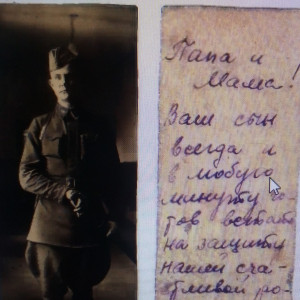 Папа и
Мама!
Ваш сын
всегда и
в любую
минуту го-
тов встать
на защиту
нашей сча-
стливой ро-